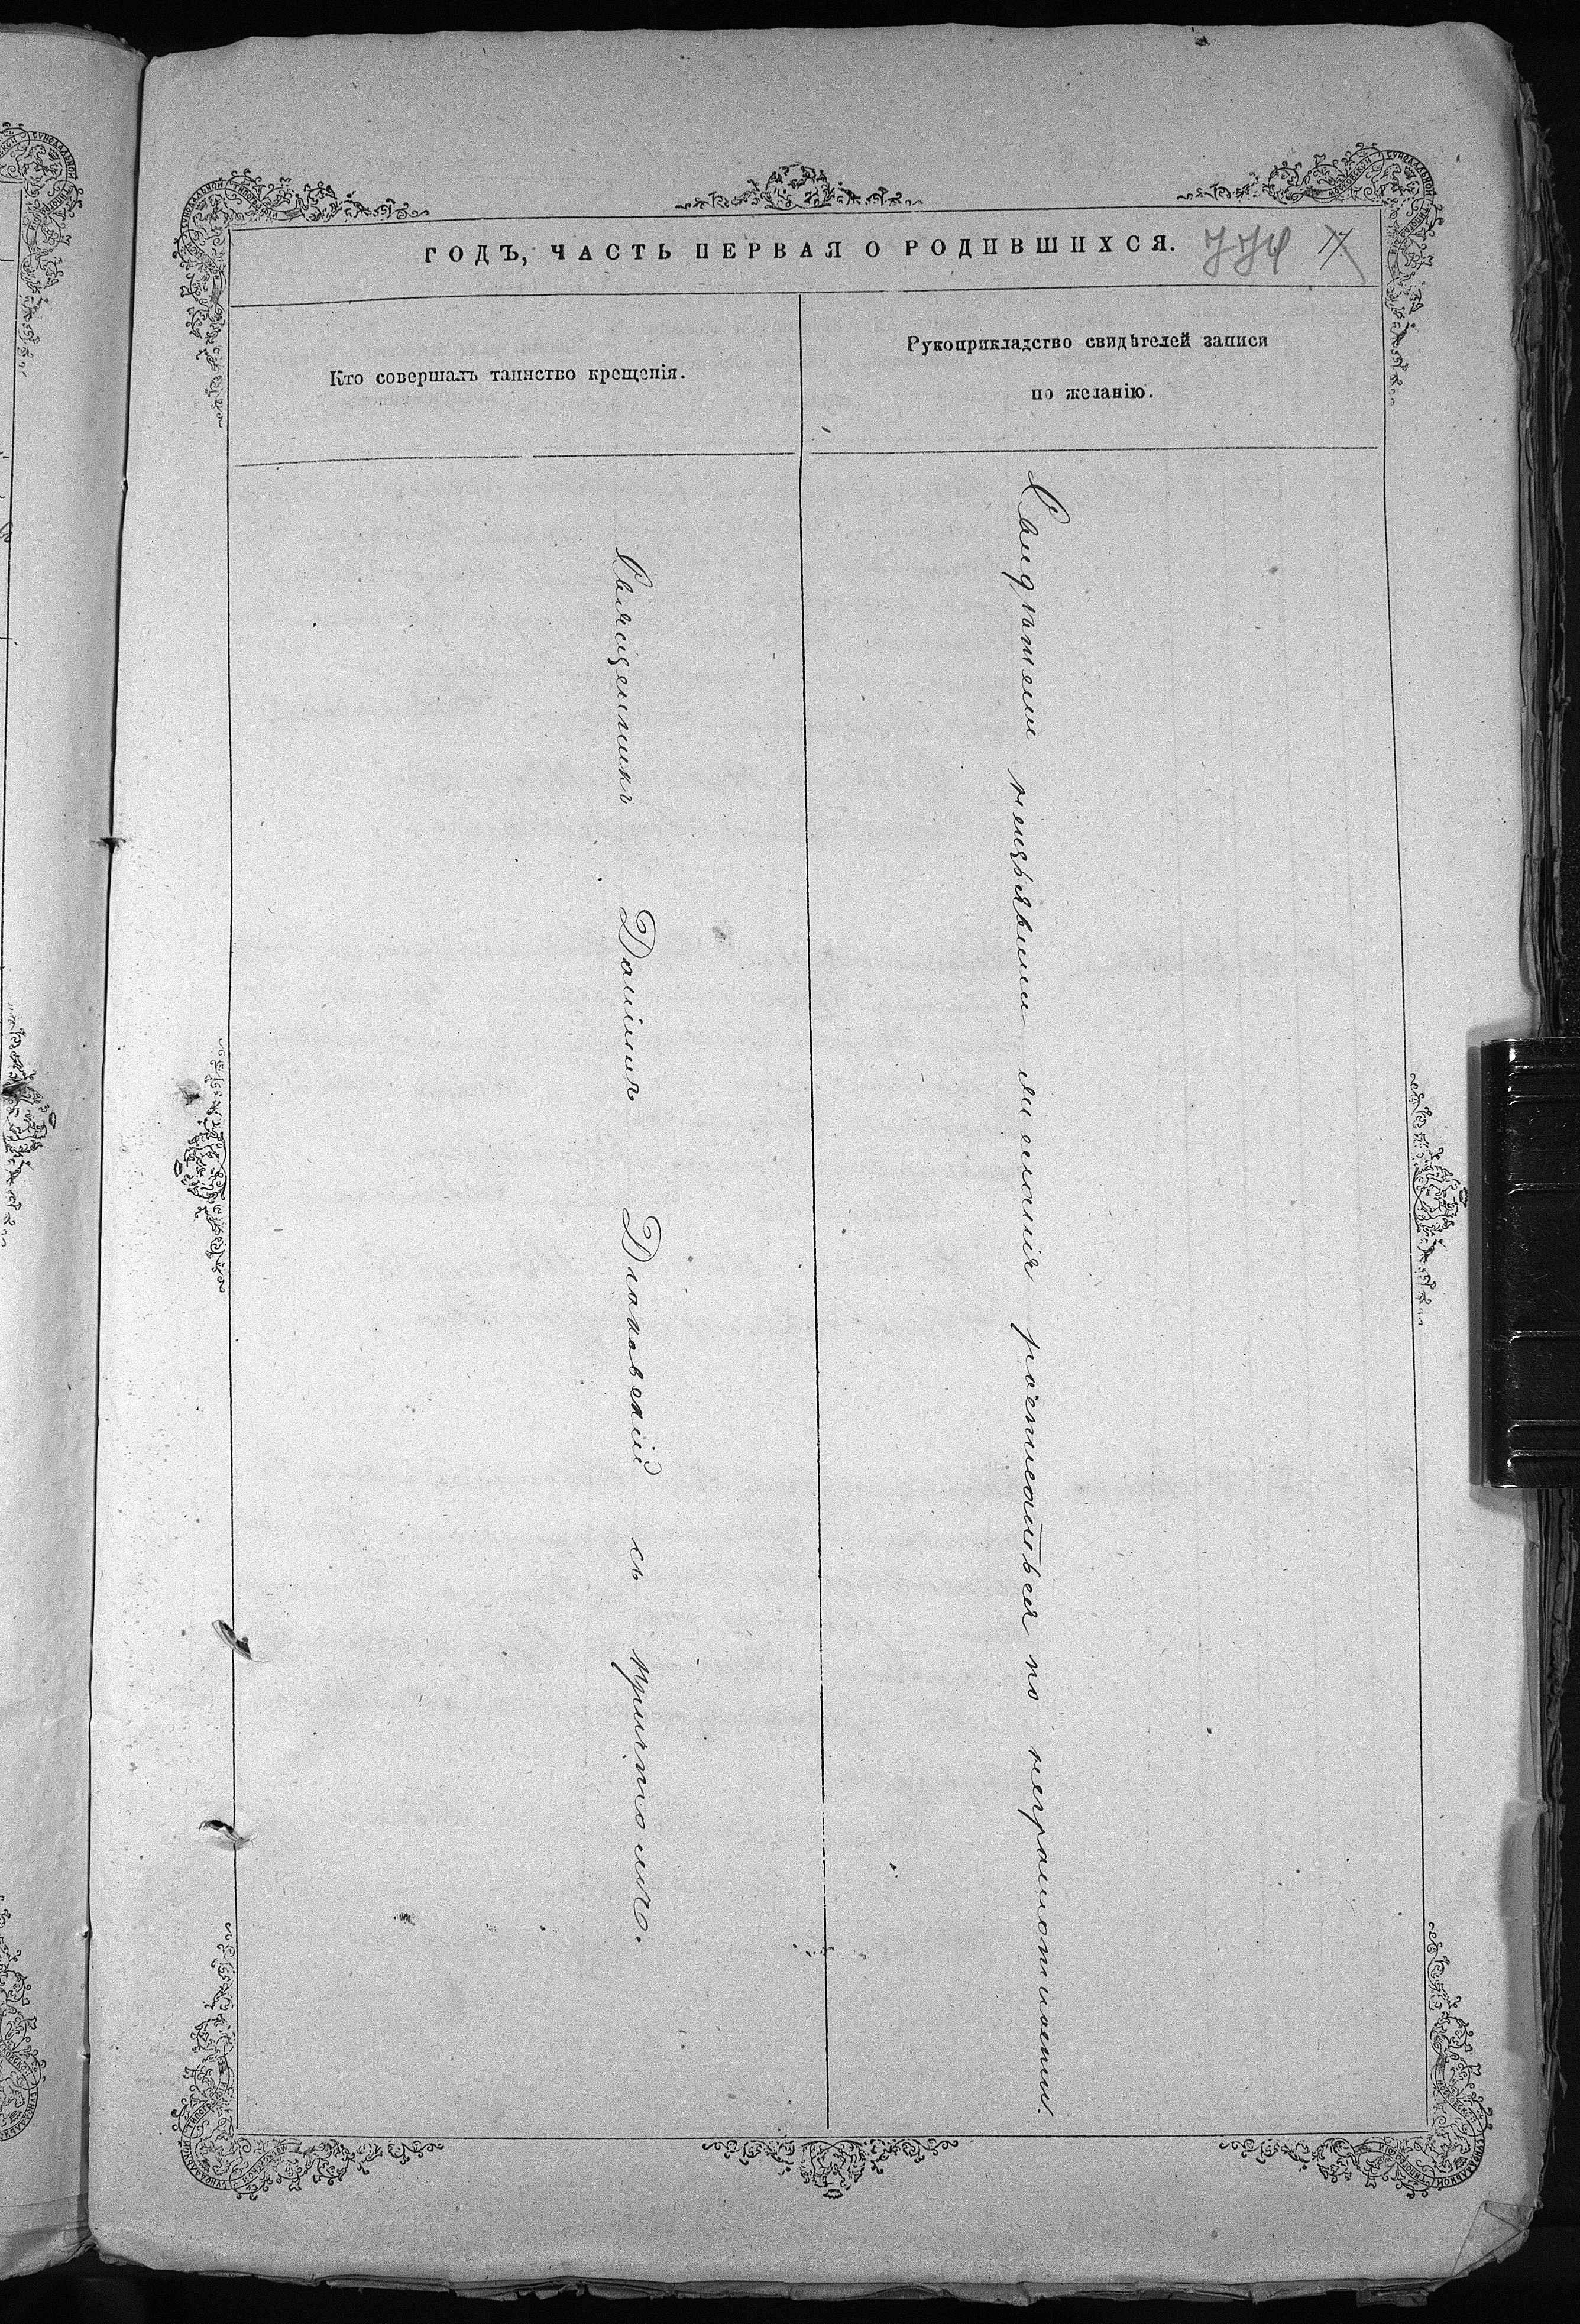 ГОДЪ, ЧАСТЬ ПЕРВАЯ О РОДИВШИХСЯ. 774
Кто совершалъ таинство крещенія.
Рукоприкладство свидѣтелей записи
по желанію.
Священникъ Даніилъ Дьяковскій съ причтомъ.
Свидѣтели неизъявили желанія росписаться по неграмотности.